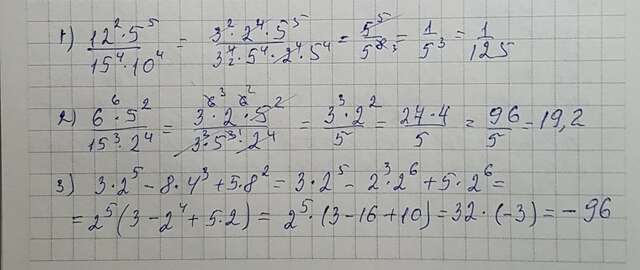 1) 12² · 5⁵ / 15⁴ · 10⁴ = 3² · 2⁴ · 5⁵ / 3⁴₂ · 5⁴ · 2⁴ · 5⁴ = 5⁵ / 5⁸ ₃ = 1 / 5³ = 1 / 125
2) 6⁶ · 5² / 15³ · 2⁴ = 3⁶ ³ · 2⁶ ² · 5² / 3³ · 5³ ¹ · 2⁴ = 3³ · 2² / 5 = 24 · 4 / 5 = 96 / 5 = 19,2
3) 3 · 2⁵ − 8 · 4³ + 5 · 8² = 3 · 2⁵ − 2³ · 2⁶ + 5 · 2⁶ =
= 2⁵ (3 − 2⁴ + 5 · 2) = 2⁵ · (3 − 16 + 10) = 32 · (−3) = − 96